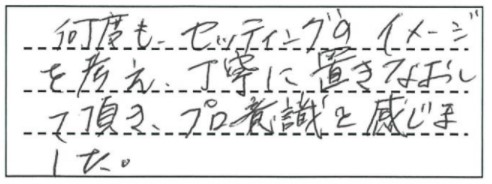 何度も、セッティングの イメージ
を考え、丁寧に置きなおし
て頂き、プロ意識を感じま
した。